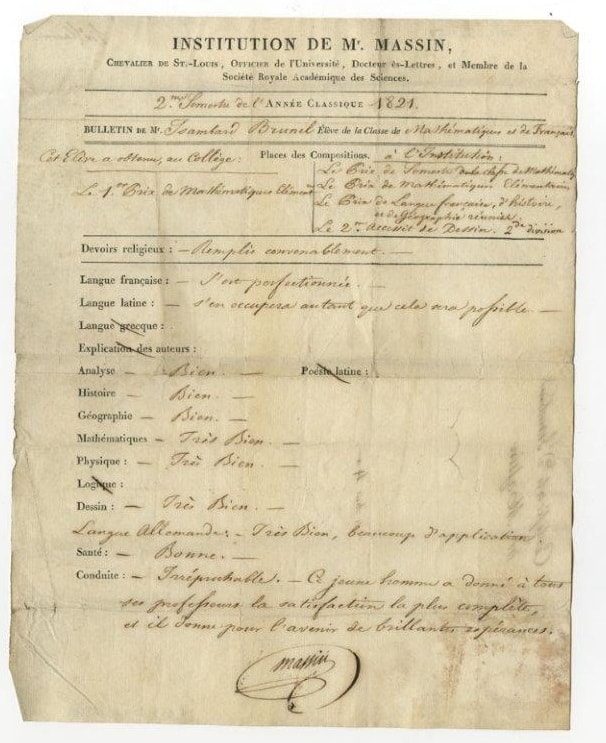 INSTITUTION DE Mr. MASSIN,
CHEVALIER DE ST.-LOUIS, OFFICIER de l'Université, Docteur ès-Lettres, et Membre de la
Société Royale Académique des Sciences.
2.me Semestre de l'ANNÉE CLASSIQUE 1821.
BULLETIN DE Mr. Isambard Brunel Élève de la Classe de Mathématiques et de Français
Cet Elève a obtenu, au Collège: Places des Compositions. à l'Institution:
Le Prix de Semestre de la classe de Mathémat.
Le 1.er Prix de Mathématiques Elément Le Prix de Mathématiques Elémentaires
Le Prix de Langue française, d'histoire,
et de Géographie réunies.
Le 2.me Accessit de Dessin. 2.de division
Devoirs religieux : — Remplis convenablement. —
Langue française : — S'est perfectionnée. —
Langue latine : — s'en occupera autant que cela sera possible. —
Langue grecque :
Explication des auteurs :
Analyse — Bien. — Poésie latine :
Histoire — Bien. —
Géographie — Bien. —
Mathématiques — Très Bien. —
Physique : — Très Bien. —
Logique :
Dessin : — Très Bien. —
Langue Allemande: — Très Bien, beaucoup d'application.
Santé : — Bonne. —
Conduite : — Irréprochable. — Ce jeune homme a donné à tous
ses professeurs la satisfaction la plus complète,
et il donne pour l'avenir de brillantes espérances.
Massin